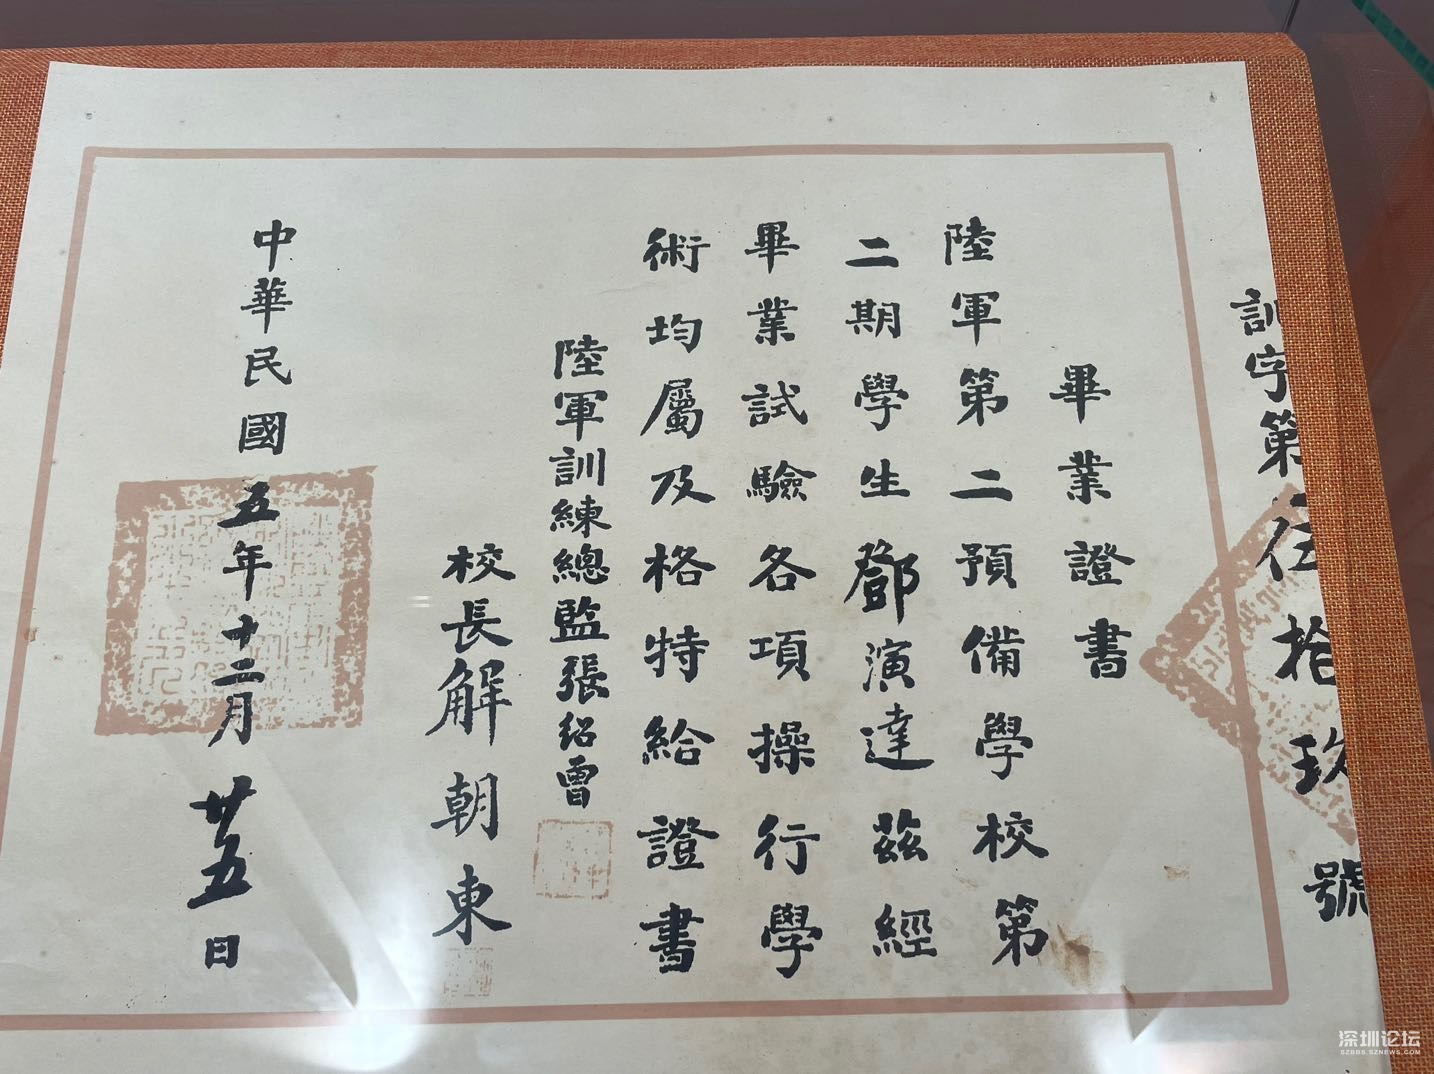 訓字第伍拾玖號
畢業證書
陸軍第二預備學校第
二期學生鄧演達茲經
畢業試驗各項操行學
術均屬及格特給證書
陸軍訓練總監張紹曾
校長解朝東
中華民國五年十二月廿五日
深圳论坛
SZBBS.SZNEWS.COM